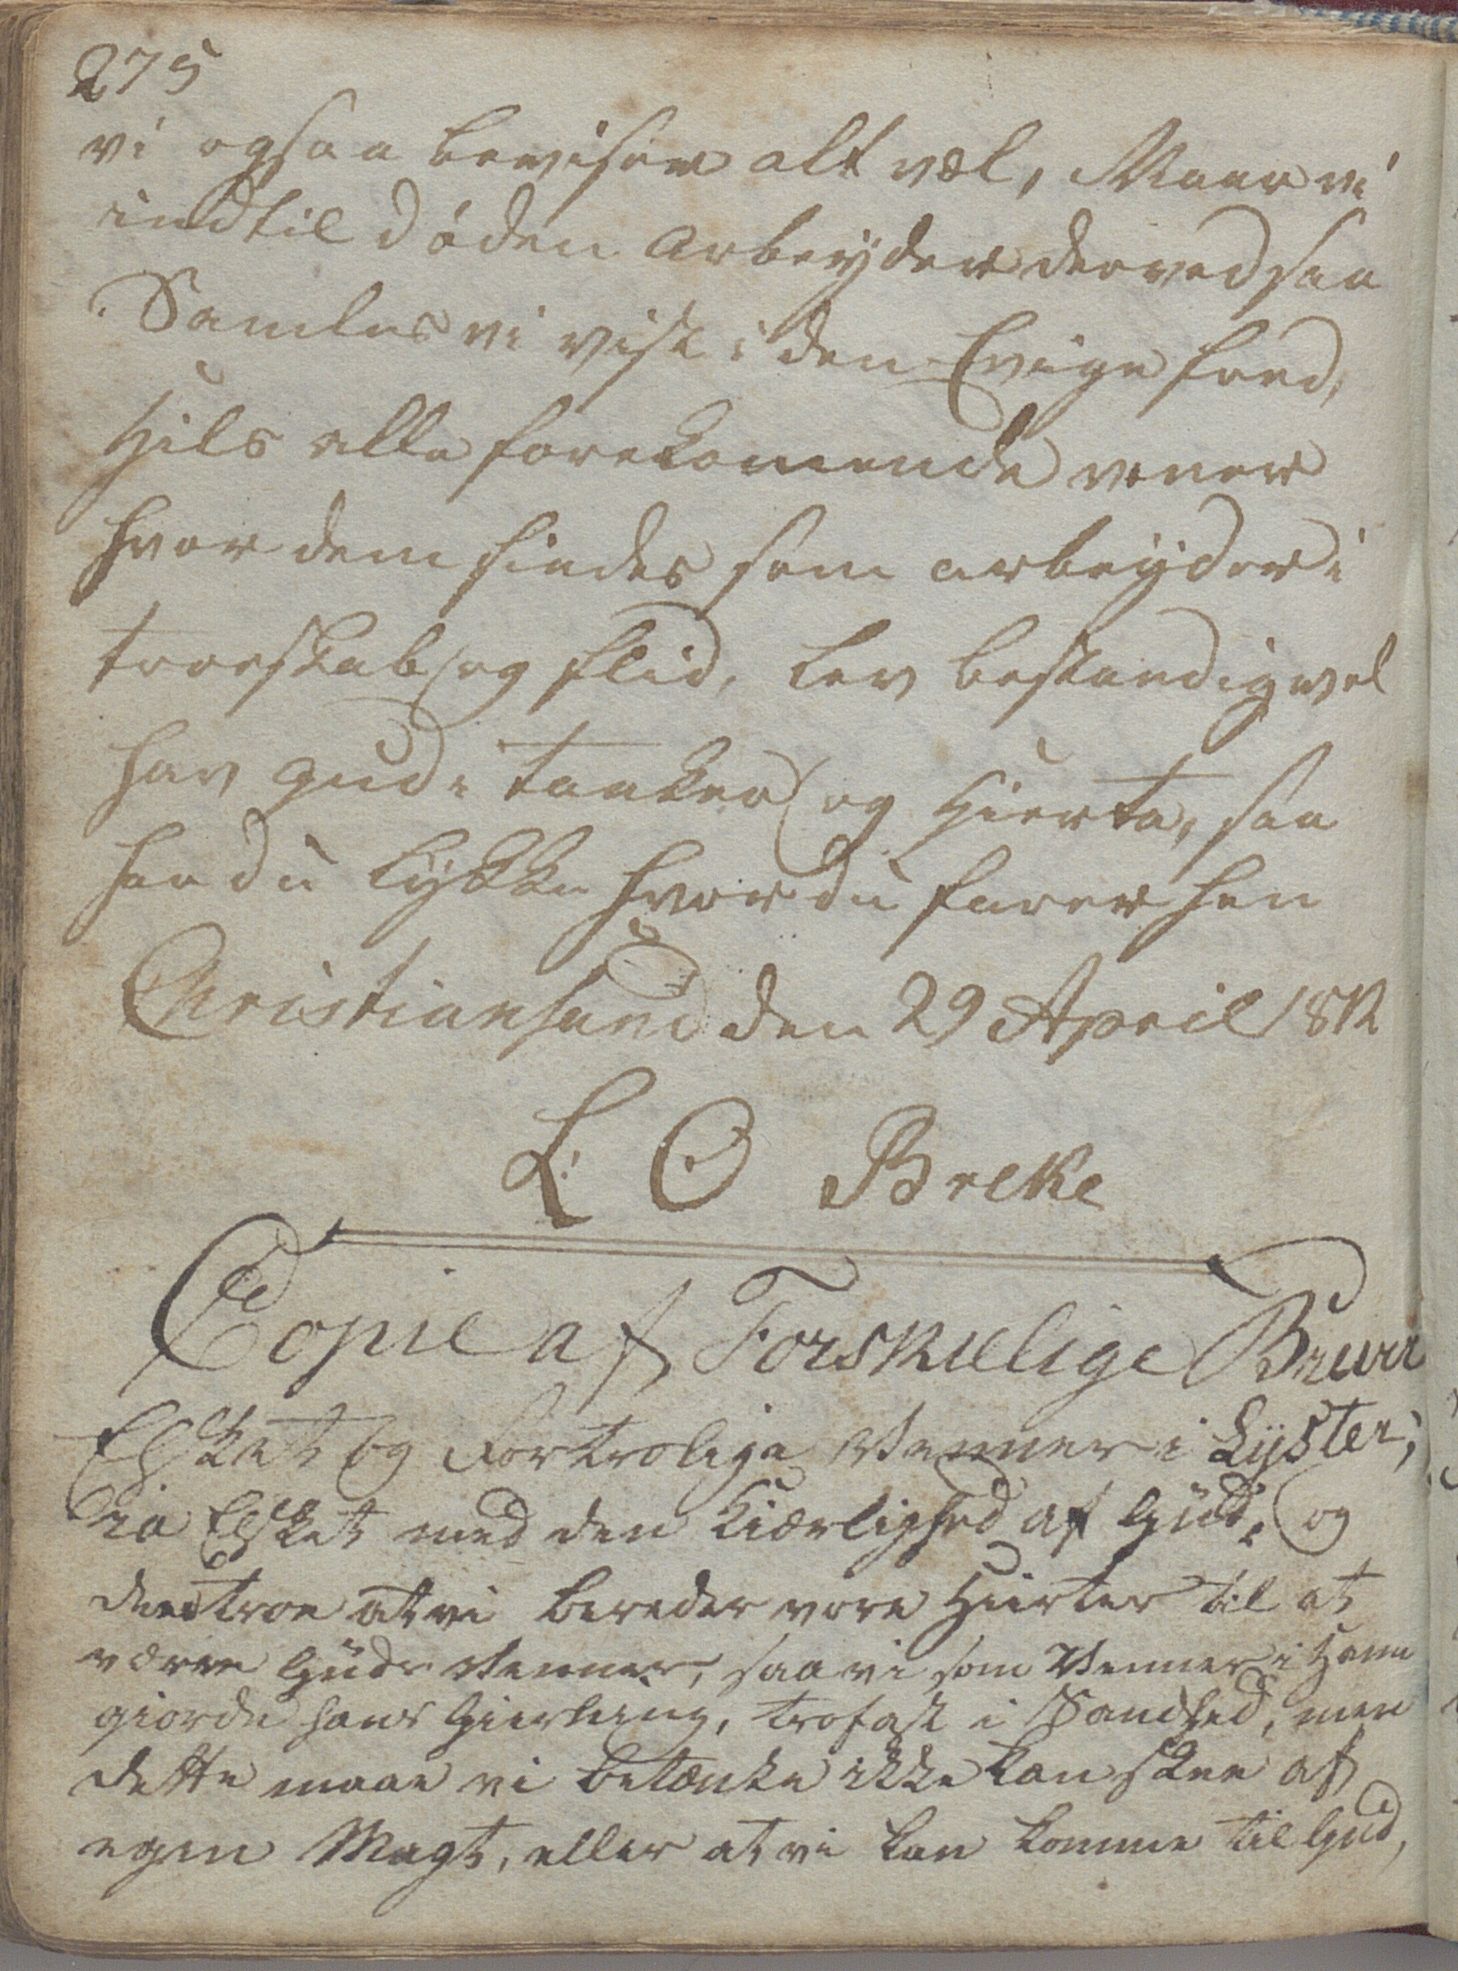 275
vi ogsaa beviser alt vel, Naar vi
indtil døden arbeyder derved saa
Samles vi vist i den Evige fred,
Hils alle forekomende vener
hvor dem findes som arbeyder i
troeskab og flid, lev bestandig vel
hav gud i tanker og Hierte, saa
har du lykke hvor du farer hen
Christiansand den 29 April 1812
L O Breke
Copie af Forskielige Breve
Elsket og Fortrolige Venner i Lyster;
ia Elsket med den Kiærlighed af Gud, og
den troe at vi bereder vore Hierter til at
være Guds Venner, saa vi som Venner i Ham
giorde hans Gierning, trofast i Sandhed, men
dette maae vi betænke ikke kan skee af
egen Magt, eller at vi kan komme til Gud,